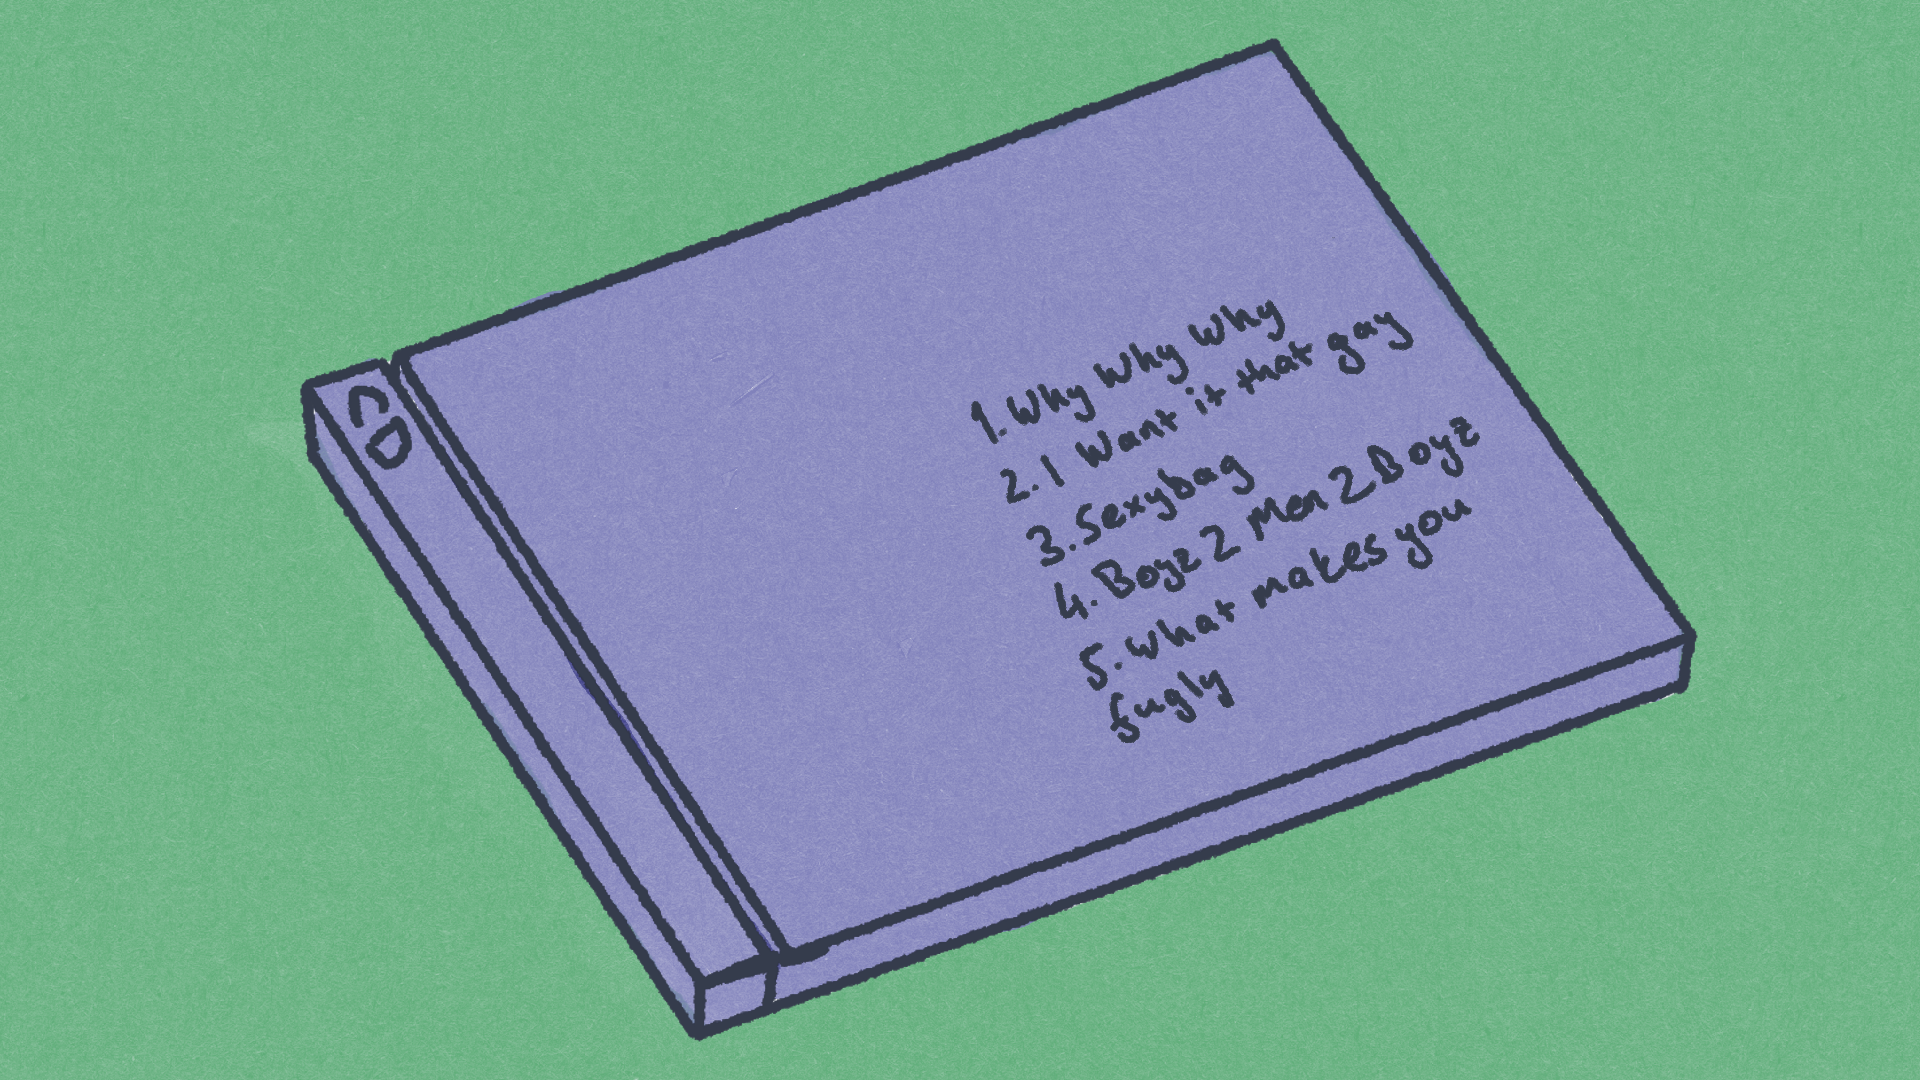 CD
1. Why Why Why
2. I Want it that gay
3. Sexybag
4. Boyz 2 Men 2 Boyz
5. What makes you
fugly